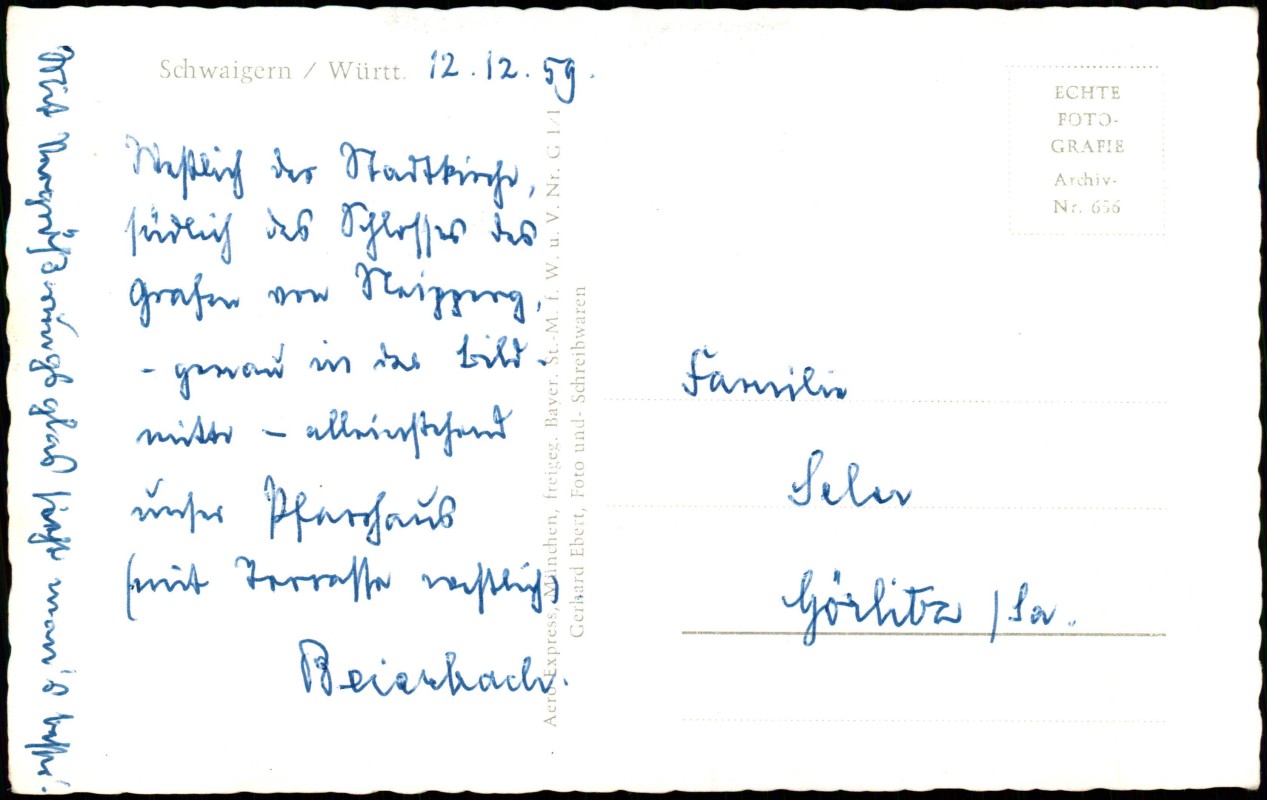 Schwaigern / Württ. 12.12.59.
Westlich der Stadtkirche,
südlich des Schlosses des
Grafen von Neipperg,
- genau in der Bild-
mitte - alleinstehend
unser Pfarrhaus
(mit Terrasse westlich).
Beierbach.
Mit Vergrößerungsglas sieht man's besser.
Aero-Express, München, freigeg. Bayer. St.-M. f. W. u. V. Nr. G 1/1
Gerhard Ebert, Foto und- Schreibwaren
ECHTE
FOTO-
GRAFIE
Archiv-
Nr. 656
Familie
Seler
Görlitz /Sa.